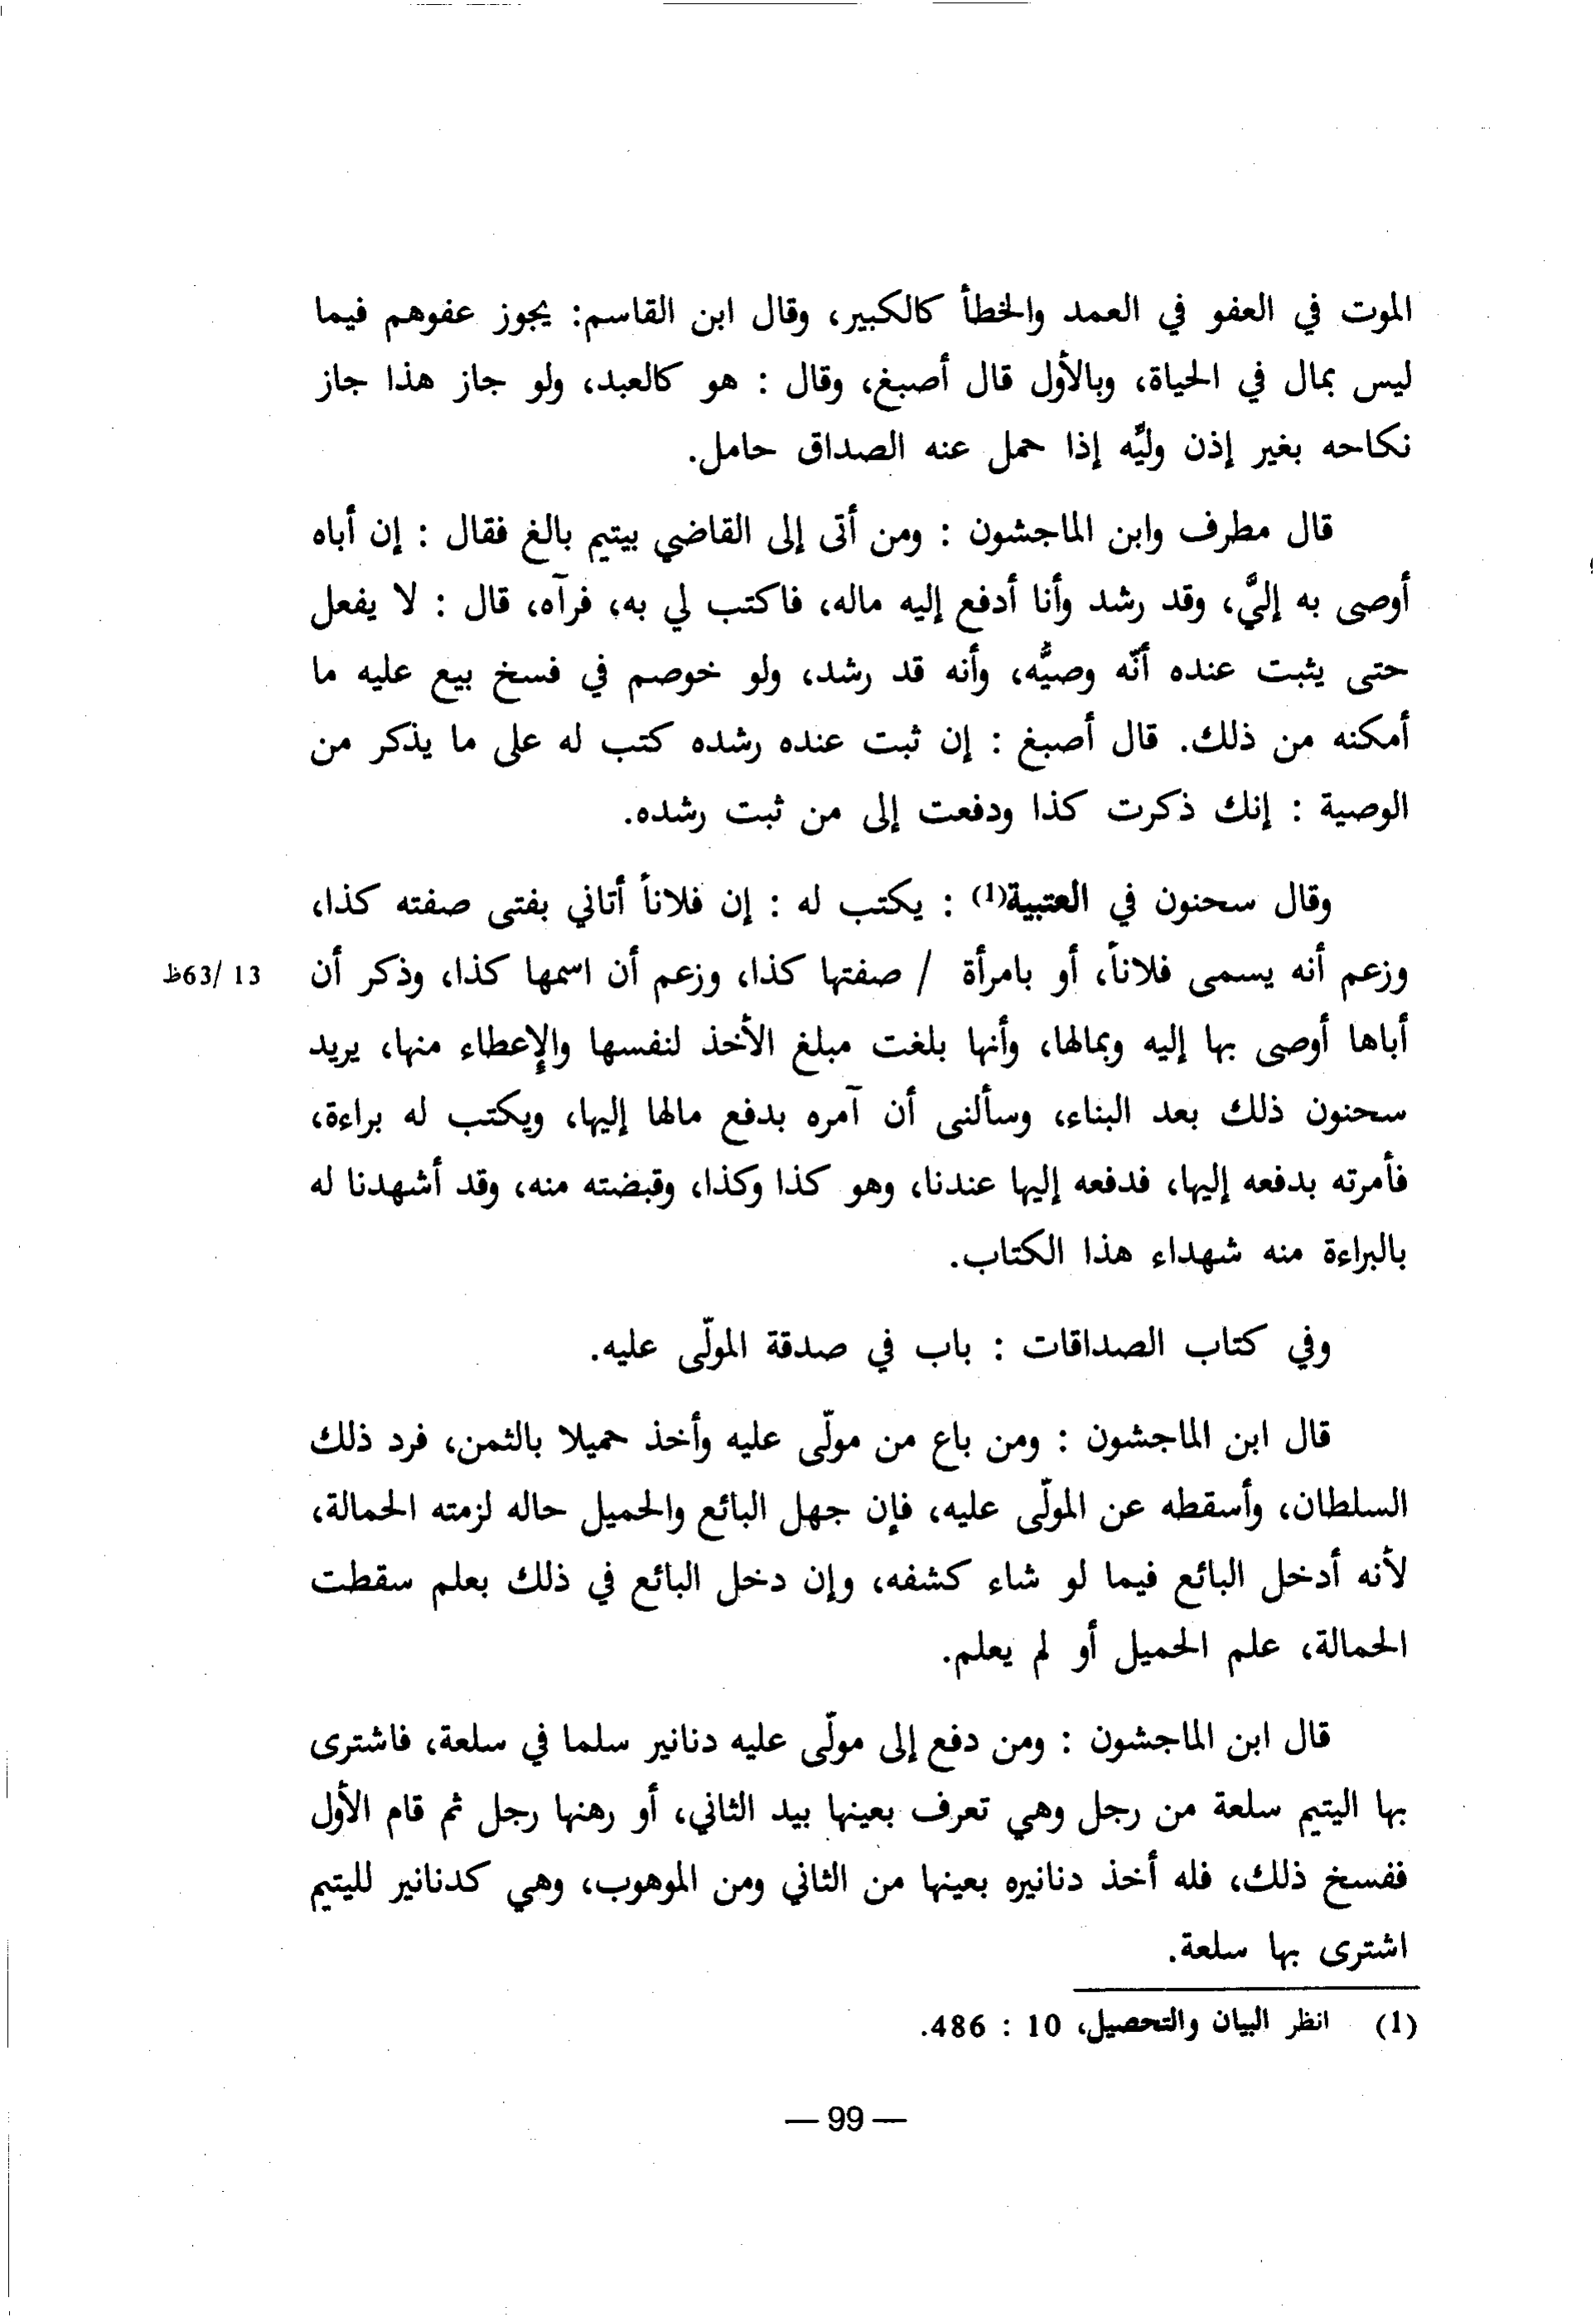 الموت في العفو في العمد والخطأ كالكبير، وقال ابن القاسم: يجوز عفوهم فيما
ليس بمال في الحياة، وبالأول قال أصبغ، وقال : هو كالعبد، ولو جاز هذا جاز
نكاحه بغير إذن وليّه إذا حمل عنه الصداق حامل.
قال مطرف وابن الماجشون : ومن أتى إلى القاضي بيتيم بالغ فقال : إن أباه
أوصى به إليَّ، وقد رشد وأنا أدفع إليه ماله، فاكتب لي به، فرآه، قال : لا يفعل
حتى يثبت عنده أنّه وصيُّه، وأنه قد رشد، ولو خوصم في فسخ بيع عليه ما
أمكنه من ذلك. قال أصبغ : إن ثبت عنده رشده كتب له على ما يذكر من
الوصية : إنك ذكرت كذا ودفعت إلى من ثبت رشده.
وقال سحنون في العتبية(1) : يكتب له : إن فلاناً أتاني بفتى صفته كذا،
وزعم أنه يسمى فلاناً، أو بامرأة / صفتها كذا، وزعم أن اسمها كذا، وذكر أن
13 /63ظ
أباها أوصى بها إليه وبمالها، وأنها بلغت مبلغ الأخذ لنفسها والإعطاء منها، يريد
سحنون ذلك بعد البناء، وسألنى أن آمره بدفع مالها إليها، ويكتب له براءة،
فأمرته بدفعه إليها، فدفعه إليها عندنا، وهو كذا وكذا، وقبضته منه، وقد أشهدنا له
بالبراءة منه شهداء هذا الكتاب.
وفي كتاب الصداقات : باب في صدقة المولّى عليه.
قال ابن الماجشون : ومن باع من مولّى عليه وأخذ حميلا بالثمن، فرد ذلك
السلطان، وأسقطه عن المولّى عليه، فإن جهل البائع والحميل حاله لزمته الحمالة،
لأنه أدخل البائع فيما لو شاء كشفه، وإن دخل البائع في ذلك بعلم سقطت
الحمالة، علم الحميل أو لم يعلم.
قال ابن الماجشون : ومن دفع إلى مولّى عليه دنانير سلما في سلعة، فاشترى
بها اليتيم سلعة من رجل وهي تعرف بعينها بيد الثاني، أو رهنها رجل ثم قام الأول
ففسخ ذلك، فله أخذ دنانيره بعينها من الثاني ومن الموهوب، وهي كدنانير لليتيم
اشترى بها سلعة.
(1) انظر البيان والتحصيل، 10 : 486.
— 99 —